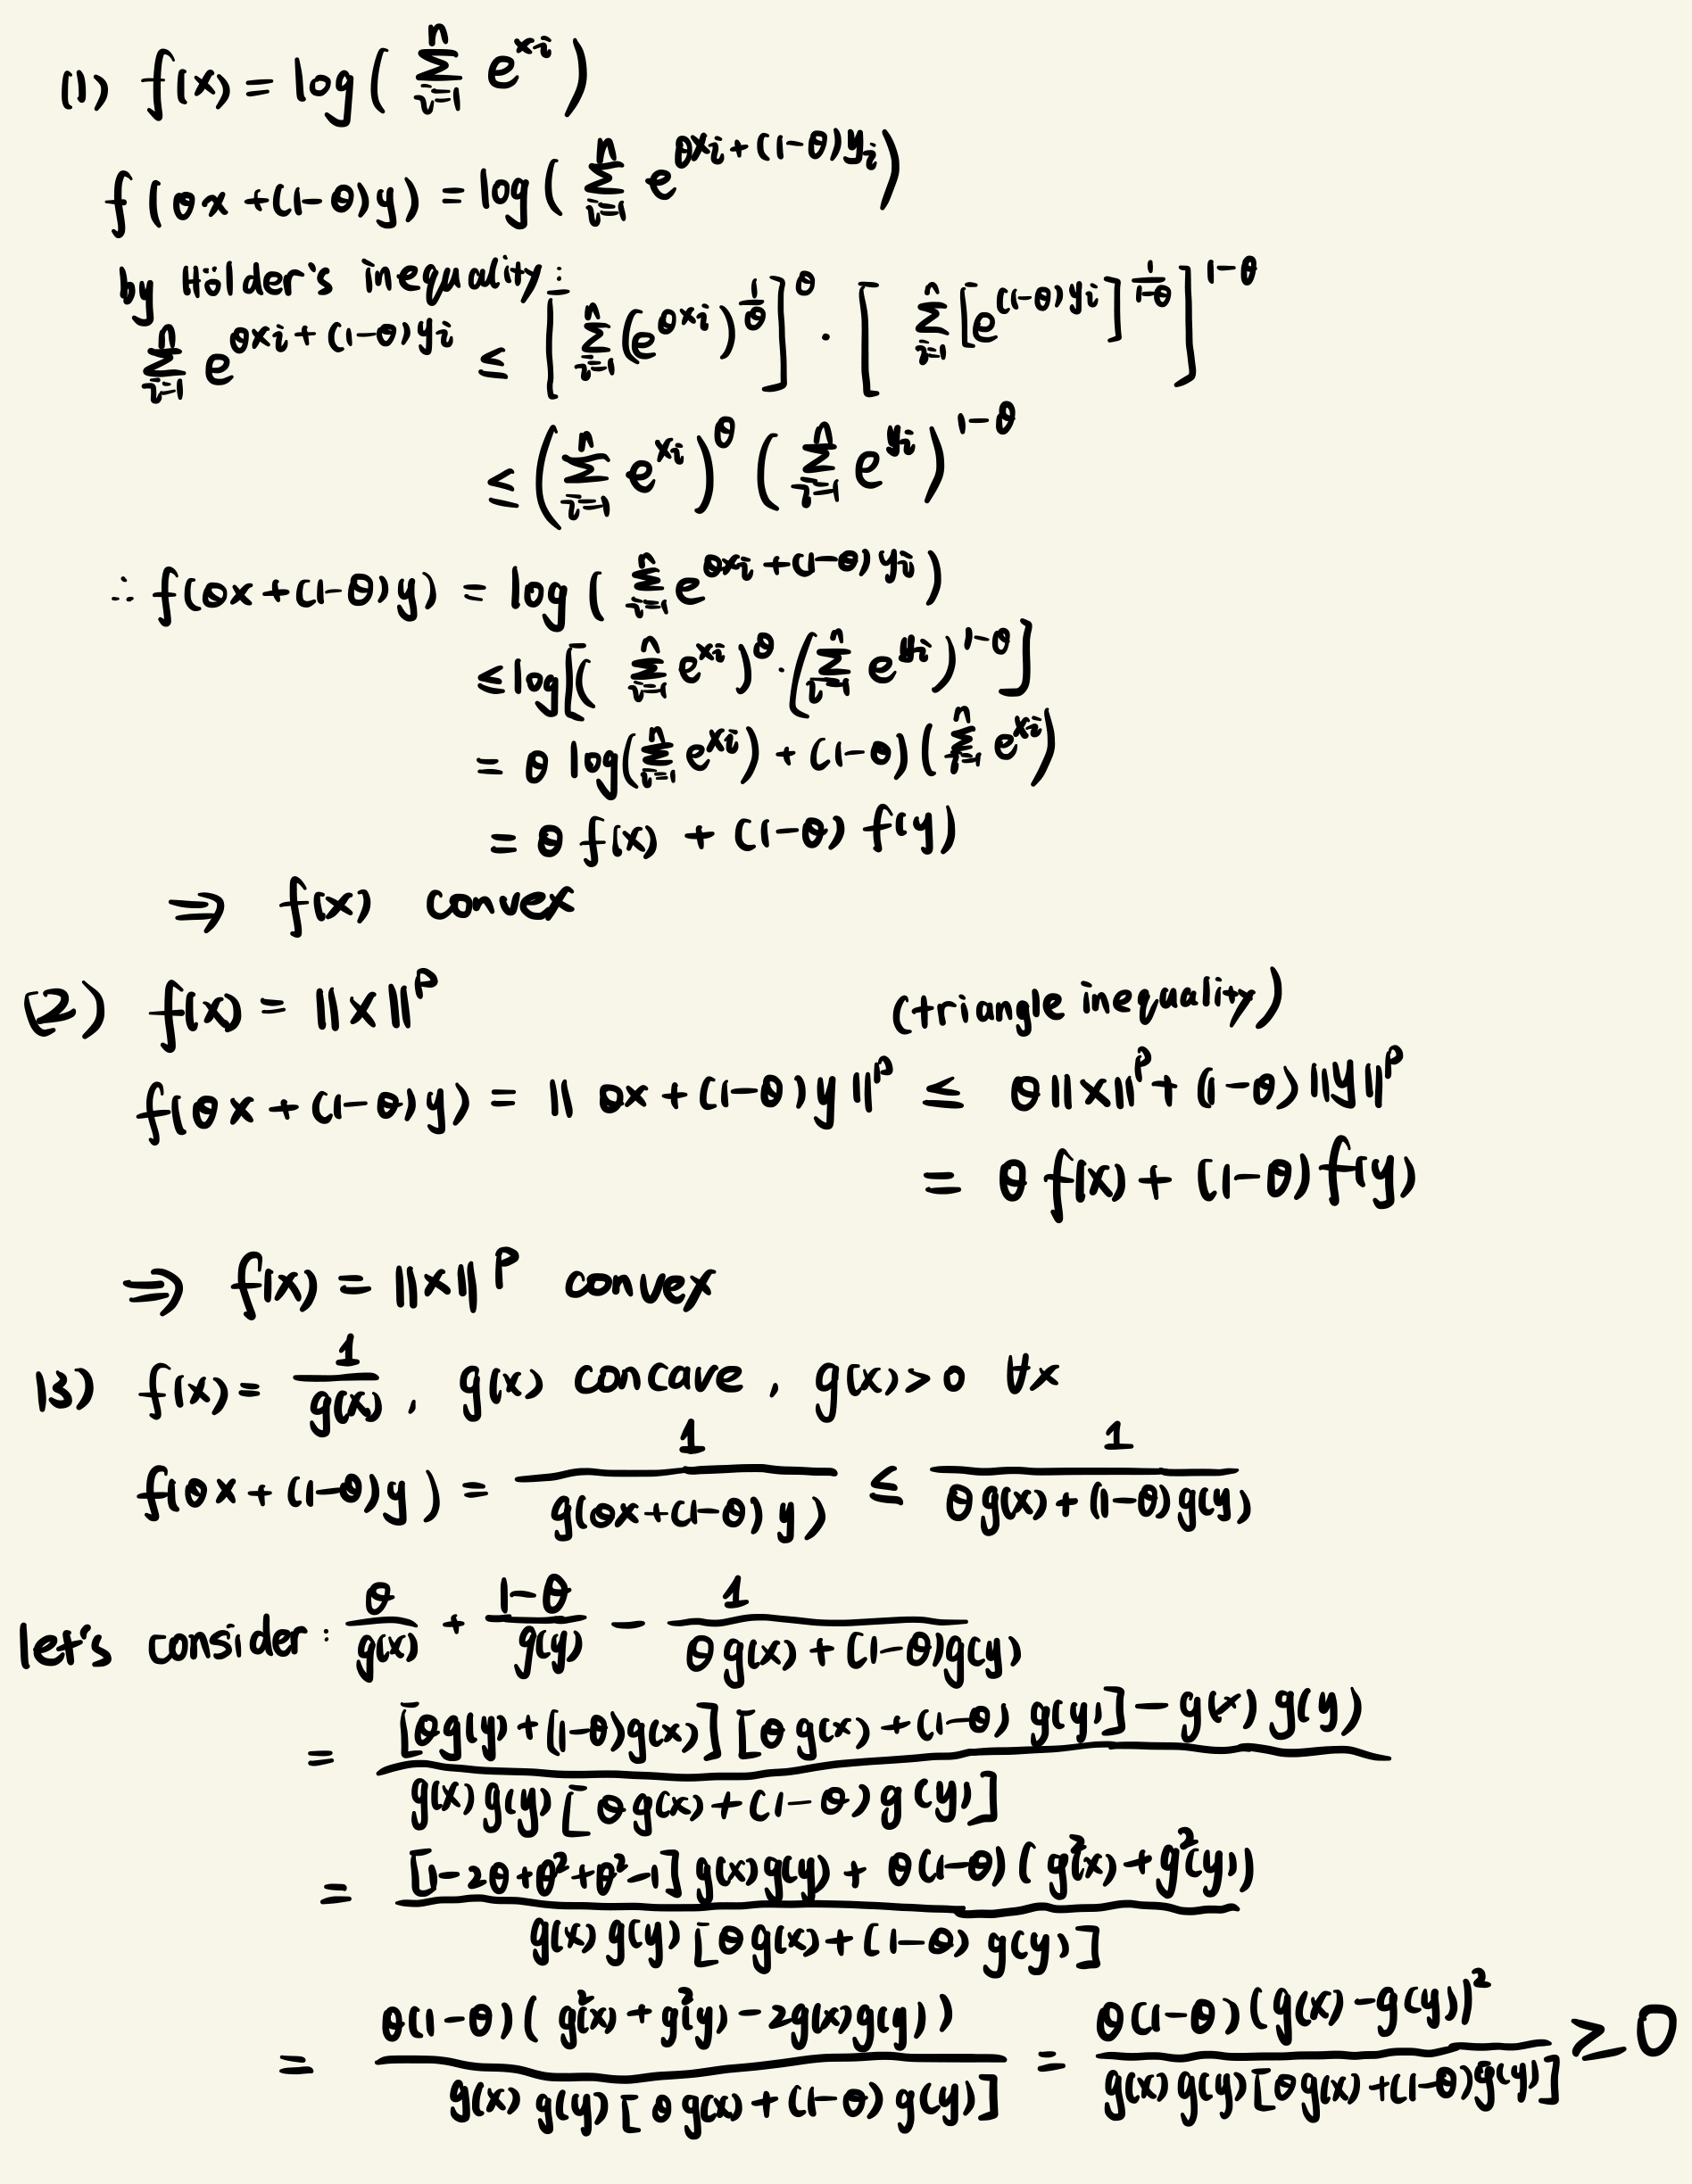 (1) f(x) = log( \sum_{i=1}^{n} e^{x_i} )
f(θx + (1-θ)y) = log( \sum_{i=1}^{n} e^{θx_i + (1-θ)y_i} )
by Hölder's inequality:
\sum_{i=1}^{n} e^{θx_i + (1-θ)y_i} ≤ [ \sum_{i=1}^{n} (e^{θx_i})^{\frac{1}{θ}} ]^{θ} · [ \sum_{i=1}^{n} [e^{(1-θ)y_i}]^{\frac{1}{1-θ}} ]^{1-θ}
≤ ( \sum_{i=1}^{n} e^{x_i} )^{θ} ( \sum_{i=1}^{n} e^{y_i} )^{1-θ}
∴ f(θx + (1-θ)y) = log ( \sum_{i=1}^{n} e^{θx_i + (1-θ)y_i} )
≤ log[ ( \sum_{i=1}^{n} e^{x_i} )^{θ} · ( \sum_{i=1}^{n} e^{y_i} )^{1-θ} ]
= θ log( \sum_{i=1}^{n} e^{x_i} ) + (1-θ) ( \sum_{i=1}^{n} e^{x_i} )
= θ f(x) + (1-θ) f(y)
⇒ f(x) convex
(2) f(x) = ||x||^p
(triangle inequality)
f(θx + (1-θ)y) = || θx + (1-θ)y ||^p ≤ θ||x||^p + (1-θ)||y||^p
= θ f(x) + (1-θ) f(y)
⇒ f(x) = ||x||^p convex
(3) f(x) = \frac{1}{g(x)}, g(x) concave, g(x) > 0 ∀x
f(θx + (1-θ)y) = \frac{1}{g(θx + (1-θ)y)} ≤ \frac{1}{θg(x) + (1-θ)g(y)}
let's consider: \frac{θ}{g(x)} + \frac{1-θ}{g(y)} - \frac{1}{θg(x) + (1-θ)g(y)}
= \frac{[θg(y) + (1-θ)g(x)][θg(x) + (1-θ)g(y)] - g(x)g(y)}{g(x)g(y)[θg(x) + (1-θ)g(y)]}
= \frac{[1-2θ+θ^2+θ^2-1]g(x)g(y) + θ(1-θ)(g^2(x) + g^2(y))}{g(x)g(y)[θg(x) + (1-θ)g(y)]}
= \frac{θ(1-θ)(g^2(x) + g^2(y) - 2g(x)g(y))}{g(x)g(y)[θg(x) + (1-θ)g(y)]} = \frac{θ(1-θ)(g(x) - g(y))^2}{g(x)g(y)[θg(x) + (1-θ)g(y)]} ≥ 0